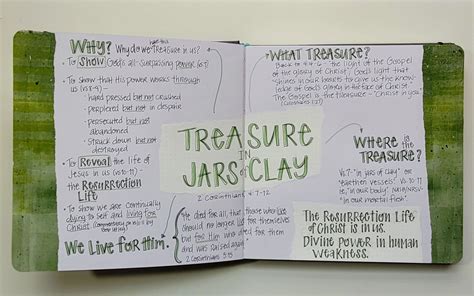 WHY? Why do we have this Treasure in us?
• To Show God's all-surpassing power (vs 7)
• To show that His power works through
us (vs 8-9) -
hard pressed but not crushed
- perplexed but not in despair
- persecuted but not
abandoned
- struck down but not
destroyed
• To Reveal the life of
Jesus in us (vs 10-11) -
the Resurrection
Life
• To show we are continually
dying to self and living for
Christ
WE LIVE FOR HIM.
"He died for all, that those who live
should no longer live for themselves
but for Him who died for them
and was raised again."
2 Corinthians 5:15
TREASURE
IN
JARS of CLAY
2 Corinthians 4:7-12
WHAT TREASURE?
Back to 4:4-6 - "the light of the Gospel
of the glory of Christ" God's light that
"shines in our hearts to give us the
knowledge of God's glory in the face of Christ"
The Gospel is the treasure - "Christ in you"
(Colossians 1:27)
WHERE IS
THE
TREASURE?
Vs. 7 - "in jars of clay" or
"earthen vessels" Vs. 10-11
"in our body"
"in our mortal flesh"
The Resurrection Life
of Christ is in us.
Divine power in human
weakness.